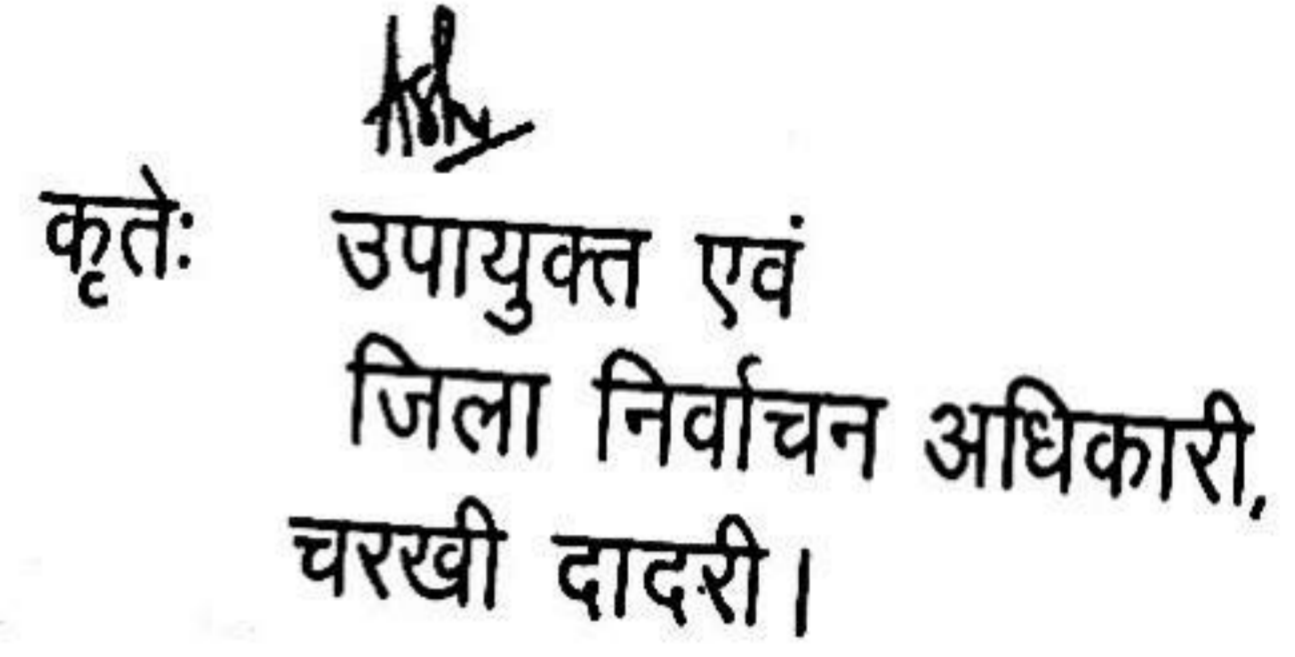 कृतेः उपायुक्त एवं
जिला निर्वाचन अधिकारी,
चरखी दादरी।